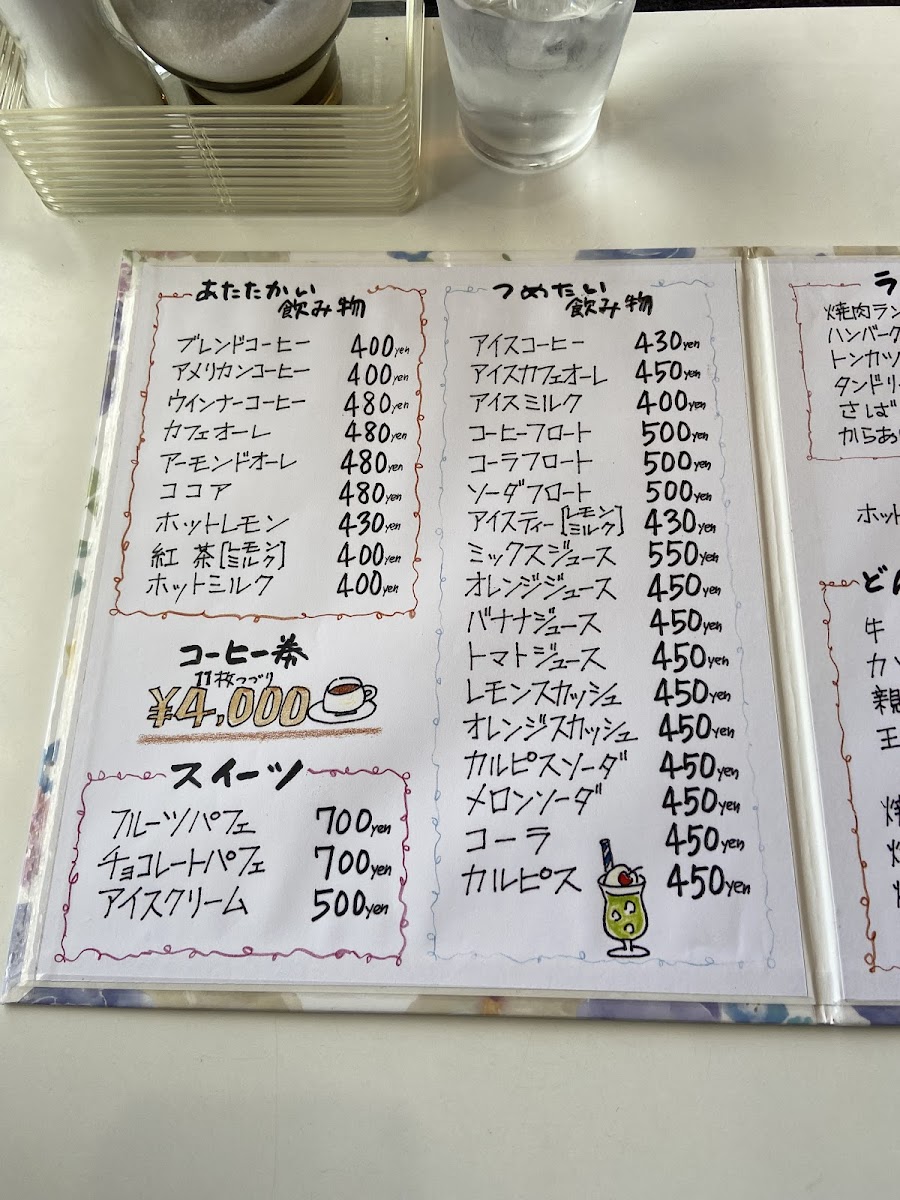 あたたかい
飲み物
ブレンドコーヒー 400yen
アメリカンコーヒー 400yen
ウインナーコーヒー 480yen
カフェオーレ 480yen
アーモンドオーレ 480yen
ココア 480yen
ホットレモン 430yen
紅茶[レモン ミルク] 400yen
ホットミルク 400yen
コーヒー券
11枚つづり
¥4,000
スイーツ
フルーツパフェ 700yen
チョコレートパフェ 700yen
アイスクリーム 500yen
つめたい
飲み物
アイスコーヒー 430yen
アイスカフェオーレ 450yen
アイスミルク 400yen
コーヒーフロート 500yen
コーラフロート 500yen
ソーダフロート 500yen
アイスティー[レモン ミルク] 430yen
ミックスジュース 550yen
オレンジジュース 450yen
バナナジュース 450yen
トマトジュース 450yen
レモンスカッシュ 450yen
オレンジスカッシュ 450yen
カルピスソーダ 450yen
メロンソーダ 450yen
コーラ 450yen
カルピス 450yen
ラ
焼肉ラン
ハンバーク
トンカツ
タンドリー
さば
からあ
ホット
ど
牛
カツ
親